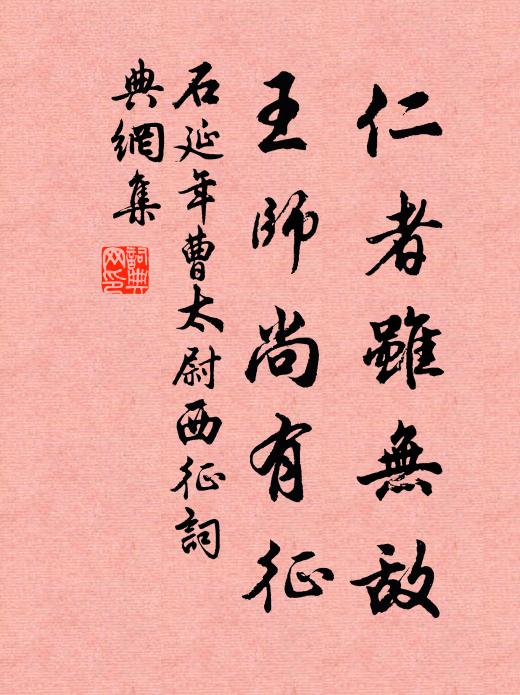 仁者雖無敌
王師尚有征
石延年曹太尉西征詞
典網集
詞典
网印